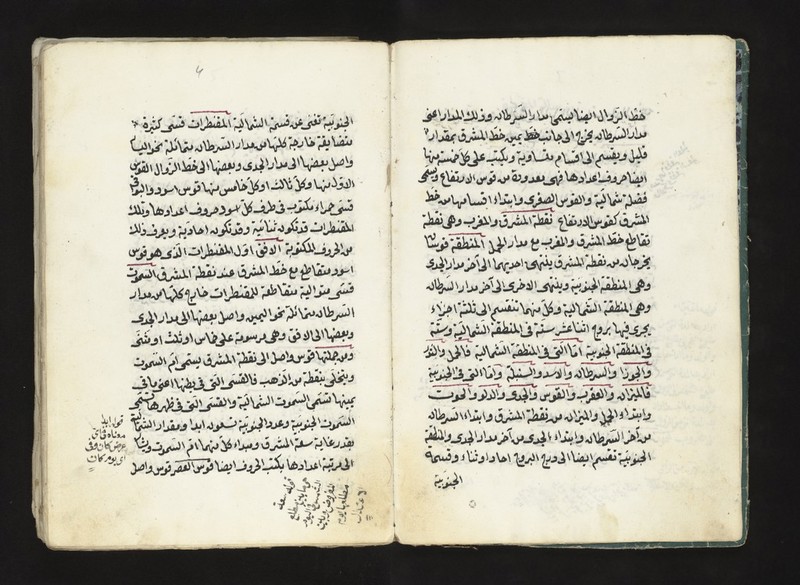 خط الزوال ايضا يسمى مدار السرطان وذلك المدار اعنى
مدار السرطان يخرج الى جانب خط يمين خط المشرق بمقدار
قليل وينقسم الى اقسام متساوية ويكتب على كل خمسة منها
ايضا حروف اعدادها فهى معدودة من قوس الارتفاع ويسمى
فضلة شمالية والقوس الصغرى وابتداء اقسامها من خط
المشرق كقوس الارتفاع نقطة المشرق والمغرب وهى نقطة
تقاطع خط المشرق والمغرب مع مدار الحمل المنطقة قوسان
يخرجان من نقطة المشرق ينتهى احديهما الى آخر مدار الجدى
وهى المنطقة الجنوبية وينتهى الاخرى الى آخر مدار السرطان
وهى المنطقة الشمالية وكل منهما تنقسم الى ثلثة اجزاء
يجرى فيها بروج اثنا عشر ستة فى المنطقة الشمالية وستة
فى المنطقة الجنوبية امّا التى فى المنطقة الشمالية فالحمل والثور
والجوزا والسرطان والاسد والسنبلة وامّا التى فى الجنوبية
فالميزان والعقرب والقوس والجدى والدلو والحوت
وابتداء الحمل والميزان من نقطة المشرق وابتداء السرطان
من آخر السرطان وابتداء الجدى من آخر مدار الجدى والمنطقة
الجنوبية تنقسم ايضا الى دريج البروج احاد او ثناء وقسمة
الجنوبية
٤
الجنوبية تغنى عن قسمة الشمالية المقنطرات قسى كثيرة
متضايقة خارجة كلها من مدار السرطان متماثلة نحو اليسا
واصل بعضها الى مدار الجدى وبعضها الى خط الزوال القوس
الاول منها وكل ثالث او كل خامس منها قوس اسود والبواقى
قسى حمراء مكتوب فى طرف كل اسود حروف اعدادها وتلك
المقنطرات قد تكون ثنائية وقد تكون احادية ويعرف ذلك
من الحروف المكتوبة الافق اول المقنطرات الذى هو قوس
اسود متقاطع مع خط المشرق عند نقطة المشرق السموت
قسى متوالية متقاطعة للمقنطرات خارج كلها من مدار
السرطان متماثلة نحو اليمين واصل بعضها الى مدار الجدى
وبعضها الى الافق وهى مرسومة على خماس او ثلث او ثنى
ومن جملتها قوس واصل الى نقطة المشرق يسمى ام السموت
ويتحلى بنقطة من الذهب فالقسى التى فى بطنها اعنى ما فى
يمينها تسمى السموت الشمالية والقسى التى فى ظهرها تسمى
السموت الجنوبية وعدد الجنوبية تسعون ابدا ومقدار الشمالية
بقدر غاية سعة المشرق ومبداء كل منهما ام السموت ويشا
الى مرتبة اعدادها بكتب الحروف ايضا قوس العصر قوس واصل
قوله ابدا
معناه فى اى
عرض كان وفى
اى يوم كان
قوله سعة